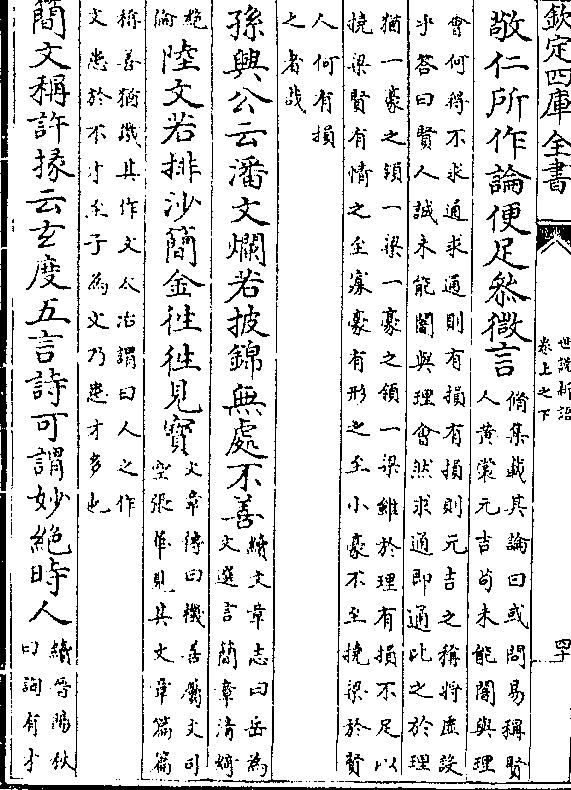 欽定四庫全書
世說新語
卷上之下
四十
敬仁所作論便足叅微言
脩集載其論曰或問易稱賢
人黃裳元吉苟未能闇與理
會何得不求通求通則有損有損則元吉之稱將虛設
乎答曰賢人誠未能闇與理會然求通即通比之於理
猶一豪之領一梁一豪之領一梁雖於理有損不足以
撓梁賢有情之至寡豪有形之至小豪不至撓梁於賢
人何有損
之者哉
孫興公云潘文爛若披錦無處不善
續文章志曰岳為
文選言簡章清綺
絶
倫
陸文若排沙簡金往往見寳
文章傳曰機善屬文司
空張華見其文章篇篇
稱善猶譏其作文大冶謂曰人之作
文患於不才至子為文乃患才多也
簡文稱許掾云𤣥度五言詩可謂妙絶時人
續晉陽秋
曰詢有才